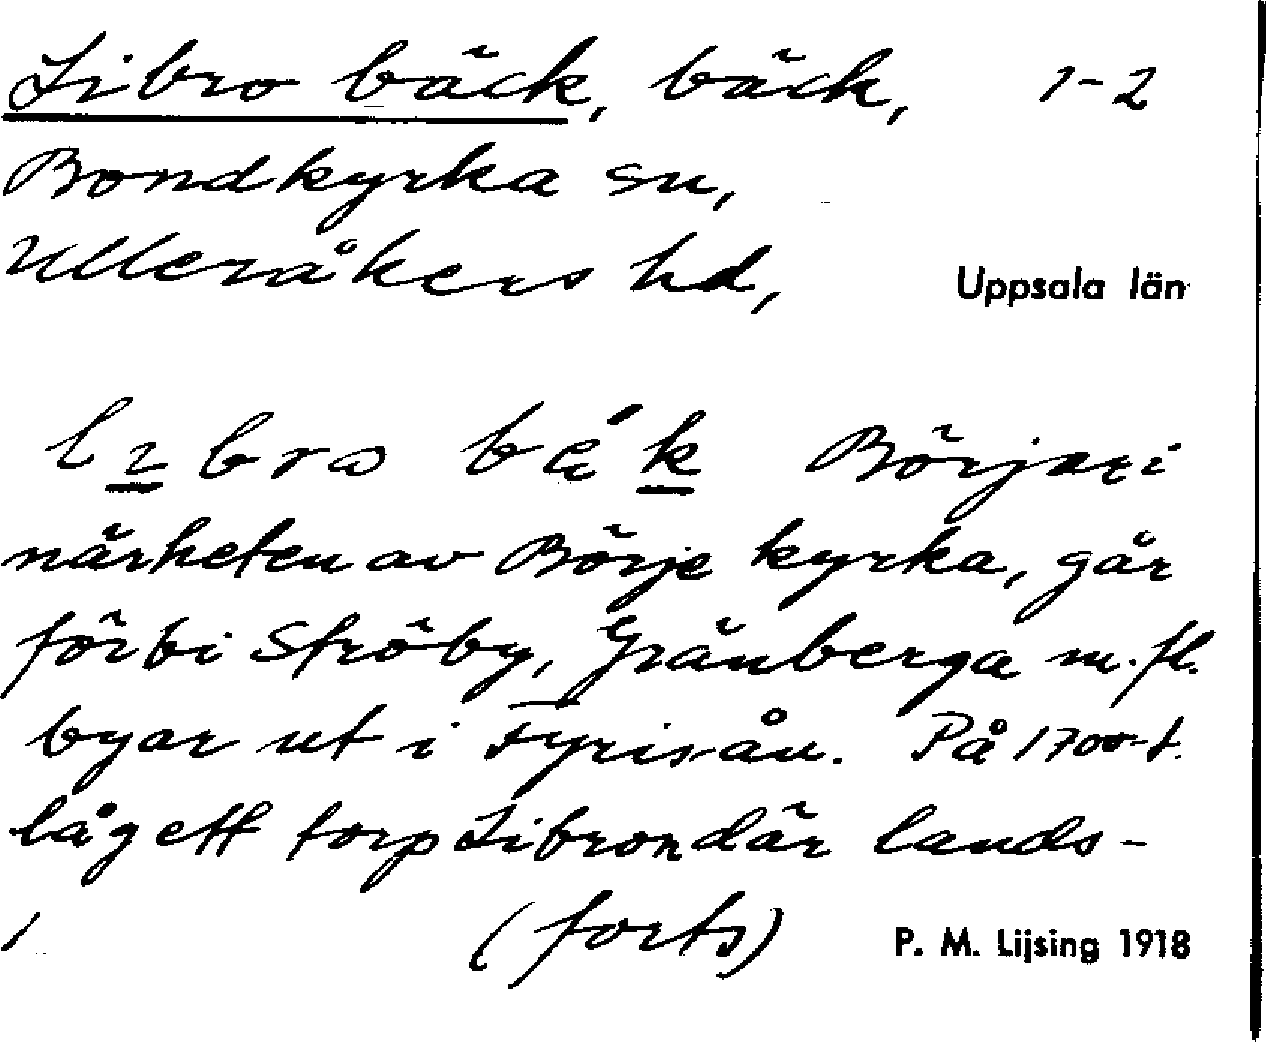 Librobäck, bäck, 1-2
Bondkyrka sn,
Ulleråkers hd, Uppsala län
Börjar i
närheten av Börje kyrka, går
förbi Ströby, Gränberga m.fl.
byar ut i Fyrisån. På 1700-t.
låg ett torp Libron där lands-
(forts) P. M. Lijsing 1918